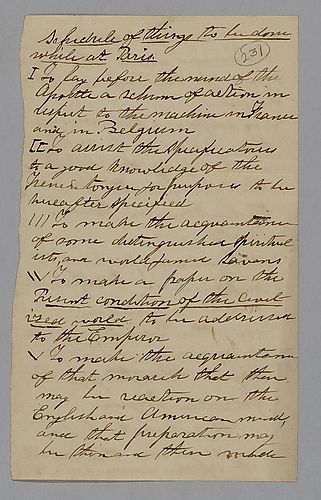 Schedule of things to be done
while at Paris.
231
I To lay before the mind of the
Apostle a scheme of action in
respect to the machine in France
and in Belgium
II To assist the
to a good knowledge of the
French tongue for purposes to be
hereafter specified
III To make the acquaintance
of some distinguished Spiritual
ists, and world famed Savans
To make a paper on the
Present condition of the Civil
ized world to be addressed
to the Emperor
V To make the acquaintance
of that monarch that there
may be reaction on the
English and American mind,
and that preparation may
be then and there made